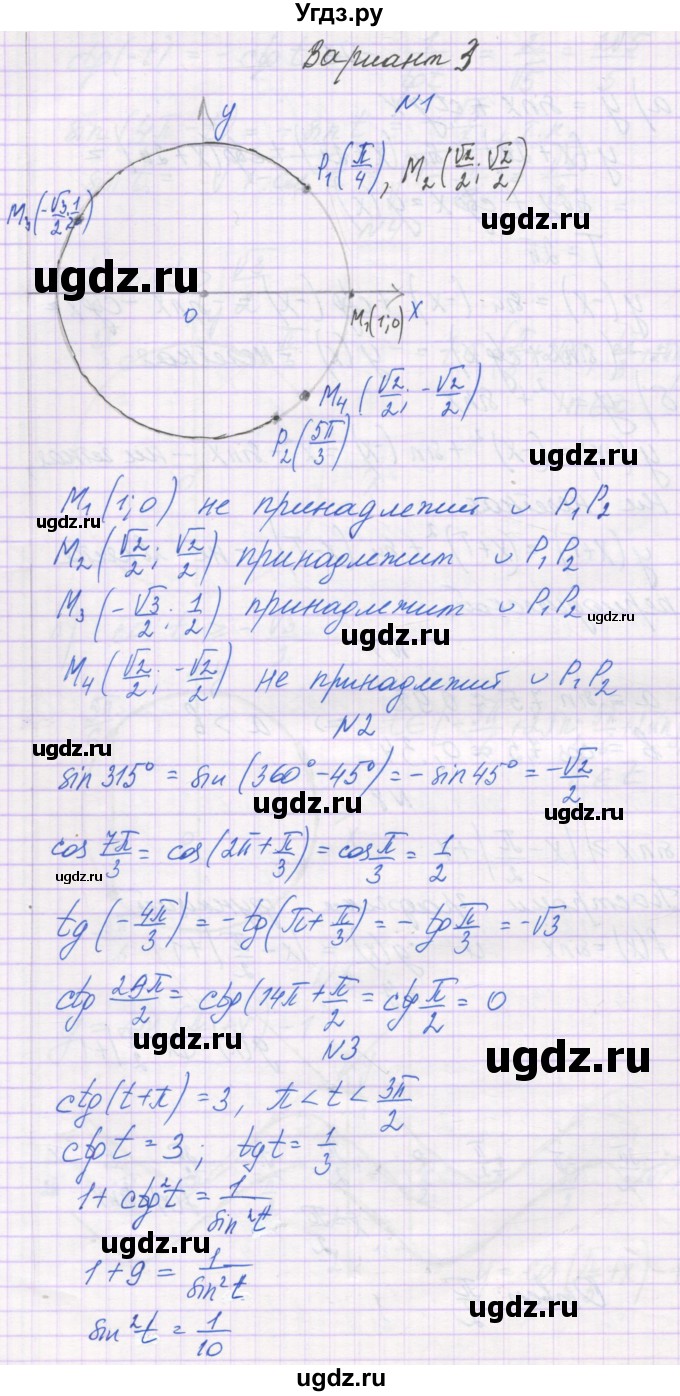 Угдз.ру
Вариант 3
N1
y
P₁(π/4), M₂(√2/2; √2/2)
M₃(-√3/2; 1/2)
ugdz.ru
ugdz.ru
0
M₁(1;0)
x
M₄(√2/2; -√2/2)
P₂(5π/3)
ugdz.ru
M₁(1;0) не принадлежит ∪ P₁P₂
ugdz.ru
M₂(√2/2; √2/2) принадлежит ∪ P₁P₂
M₃(-√3/2; 1/2) принадлежит ∪ P₁P₂
ugdz.ru
M₄(√2/2; -√2/2) не принадлежит ∪ P₁P₂
N2
ugdz.ru
sin 315° = sin (360° - 45°) = - sin 45° = -√2/2
ugdz.ru
cos 7π/3 = cos(2π + π/3) = cos π/3 = 1/2
ugdz.ru
tg(-4π/3) = -tg(π + π/3) = -tg π/3 = -√3
ctg 29π/2 = ctg(14π + π/2 = ctg π/2 = 0
ugdz.ru
N3
ugdz.ru
ctg(t+π) = 3, π < t < 3π/2
ctg t = 3; tg t = 1/3
1 + ctg²t = 1/sin²t
ugdz.ru
1 + 9 = 1/sin²t
ugdz.ru
sin²t = 1/10
ugdz.ru